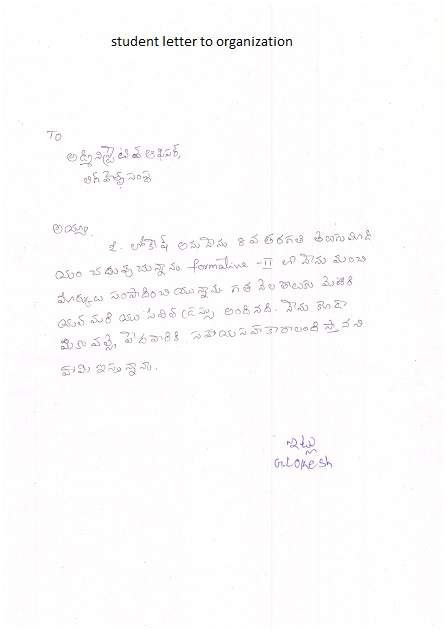 student letter to organization
To
అడ్మినిస్ట్రేటివ్ ఆఫీసర్,
సంస్థ
అయ్యా.
జి. లోకేష్ అను నేను 8 వ తరగతి తెలుగుమీడి
యం చదువుచున్నాను formative - II లో నేను మంచి
మార్కులు సంపాదించి యున్నాను. గత నెల
మరి యు అందినది. నేను కూడా
మీలా పేదవారికి సహాయసహకారాలందిస్తానని
హామి ఇస్తున్నాను.
ఇట్లు
G.LOKesh